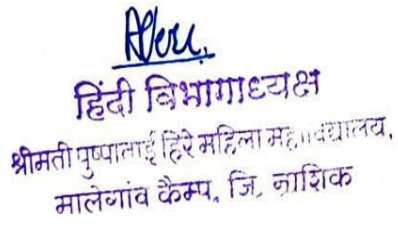 हिंदी विभागाध्यक्ष
श्रीमती पुष्पाताई हिरे महिला महाविद्यालय,
मालेगांव कैम्प, जि. नाशिक